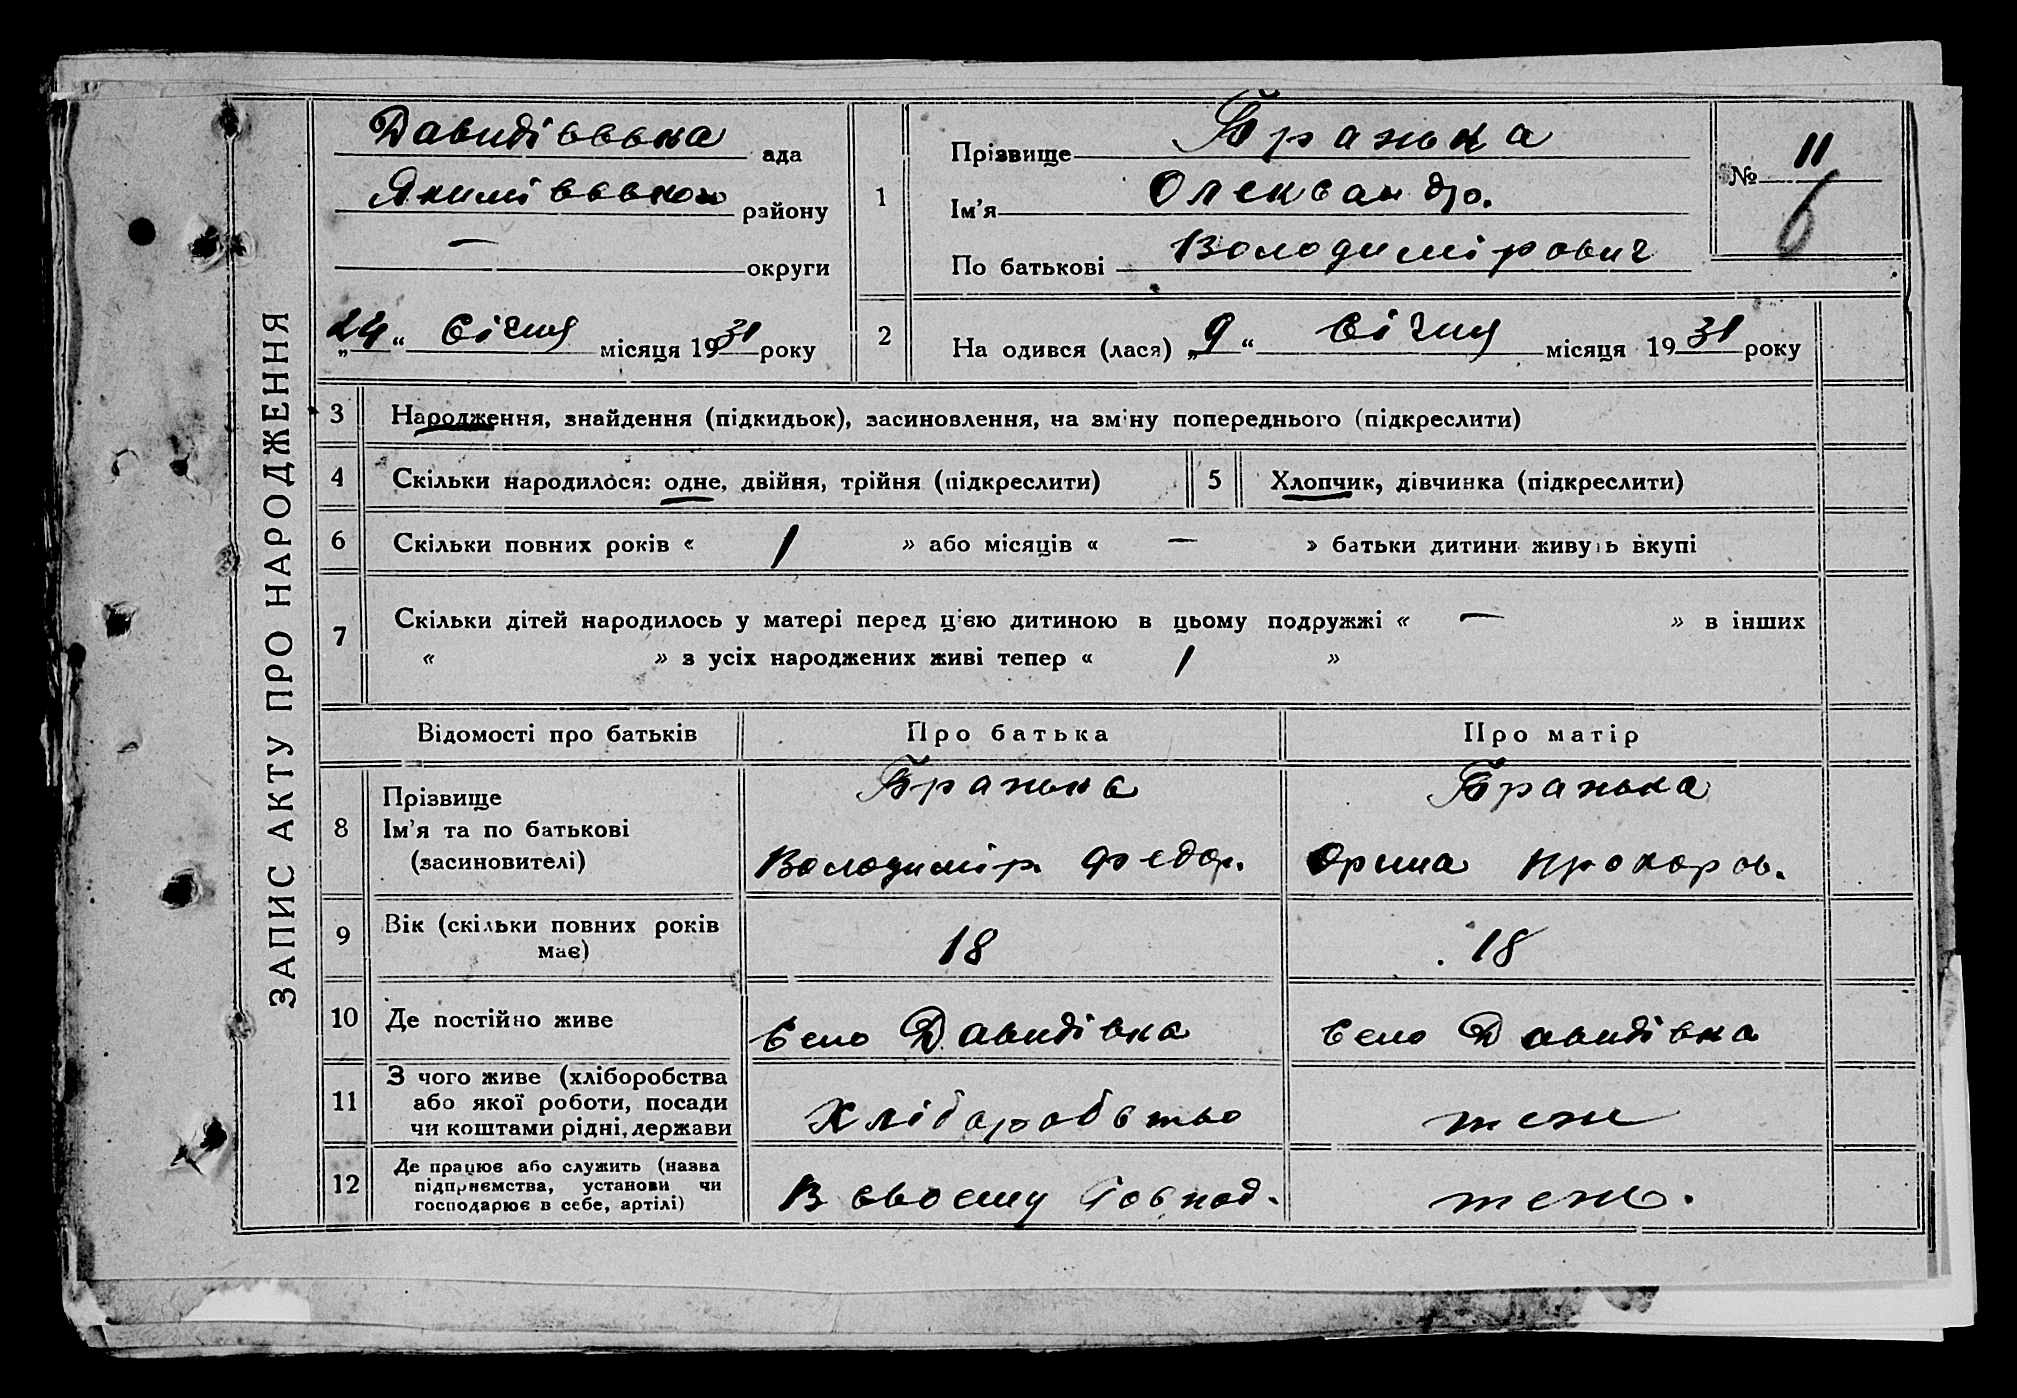 ЗАПИС АКТУ ПРО НАРОДЖЕННЯ
Давидівська ада
Якимівської району
— округи
„24“ Січня місяця 1931 року
1
Прізвище Бранька
Ім'я Олександр.
По батькові Володимірович
№ 11
6
2
На одився (лася) „9“ Січня місяця 1931 року
3 Народження, знайдення (підкидьок), засиновлення, на зміну попереднього (підкреслити)
4 Скільки народилося: одне, двійня, трійня (підкреслити) 5 Хлопчик, дівчинка (підкреслити)
6 Скільки повних років « 1 » або місяців « — » батьки дитини живуть вкупі
7 Скільки дітей народилось у матері перед цією дитиною в цьому подружжі « — » в інших
« » з усіх народжених живі тепер « 1 »
Відомості про батьків Про батька Про матір
8 Прізвище Бранька Бранька
Ім'я та по батькові
(засиновителі) Володимір Федор. Орина Прокоров.
9 Вік (скільки повних років
має) 18 18
10 Де постійно живе Село Давидівка Село Давидівка
11 З чого живе (хліборобства
або якої роботи, посади
чи коштами рідні, держави Хліборобство теж
12 Де працює або служить (назва
підприємства, установи чи
господарює в себе, артілі) В своєму Господ. теж.